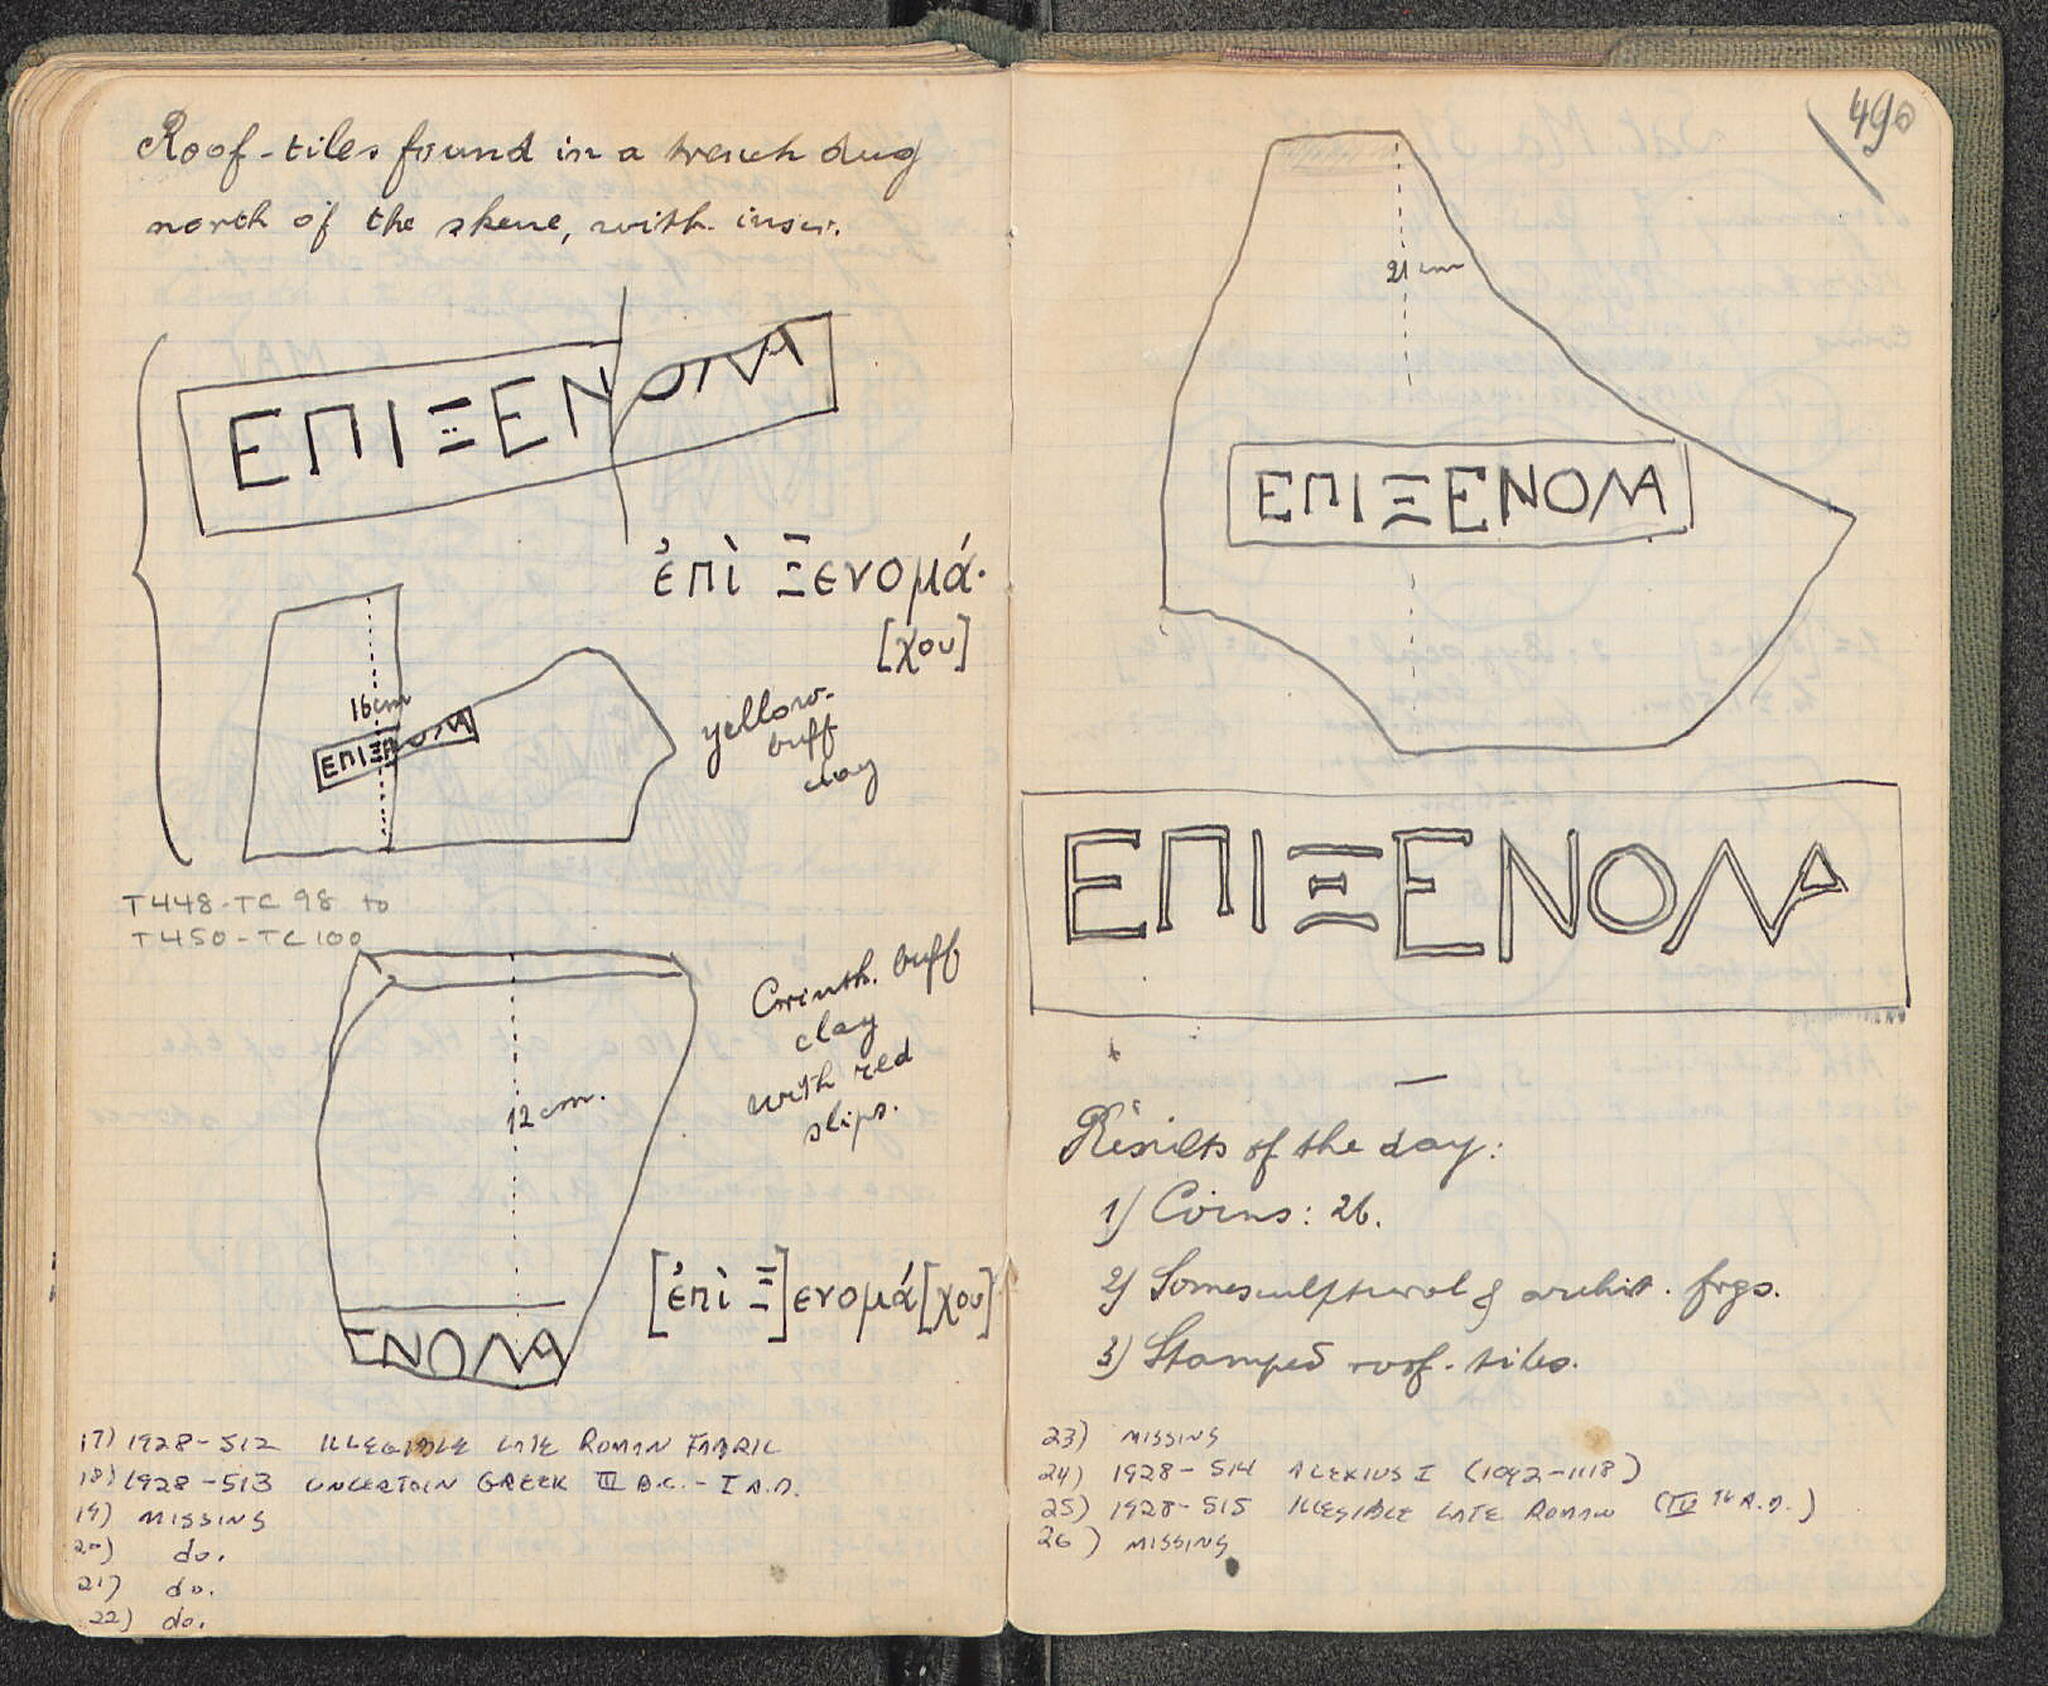 Roof-tiles found in a trench dug
north of the skene, with inscr.
ΕΠΙΞΕΝΟΜΑ
ἐπὶ Ξενομά.
[χου]
16cm
ΕΠΙΞΕΝΟΜΑ
yellow-
buff
clay
T448-TC 98 to
T450-TC100
Corinth. buff
clay
with red
slips.
12cm.
[ἐπὶ Ξ]ενομά[χου]
ΕΝΟΜΑ
17) 1928-512 ILLEGIBLE LATE ROMAN FABRIC
18) 1928-513 UNCERTAIN GREEK III B.C.-I A.D.
19) MISSING
20) do.
21) do.
22) do.
490
21cm
ΕΠΙΞΕΝΟΜΑ
ΕΠΙΞΕΝΟΜΑ
Results of the day:
1) Coins: 26.
2) Some sculptural & archit. frgs.
3) Stamped roof-tiles.
23) MISSING
24) 1928-514 ALEXIUS I (1092-1118)
25) 1928-515 ILLEGIBLE LATE ROMAN (IV TH A.D.)
26) MISSING